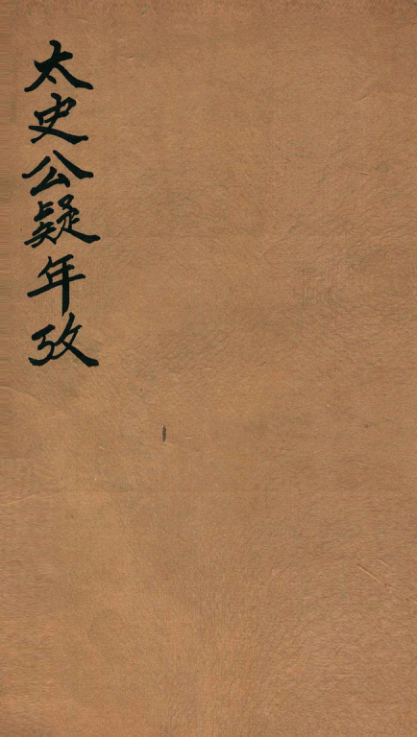 太史公疑年攷